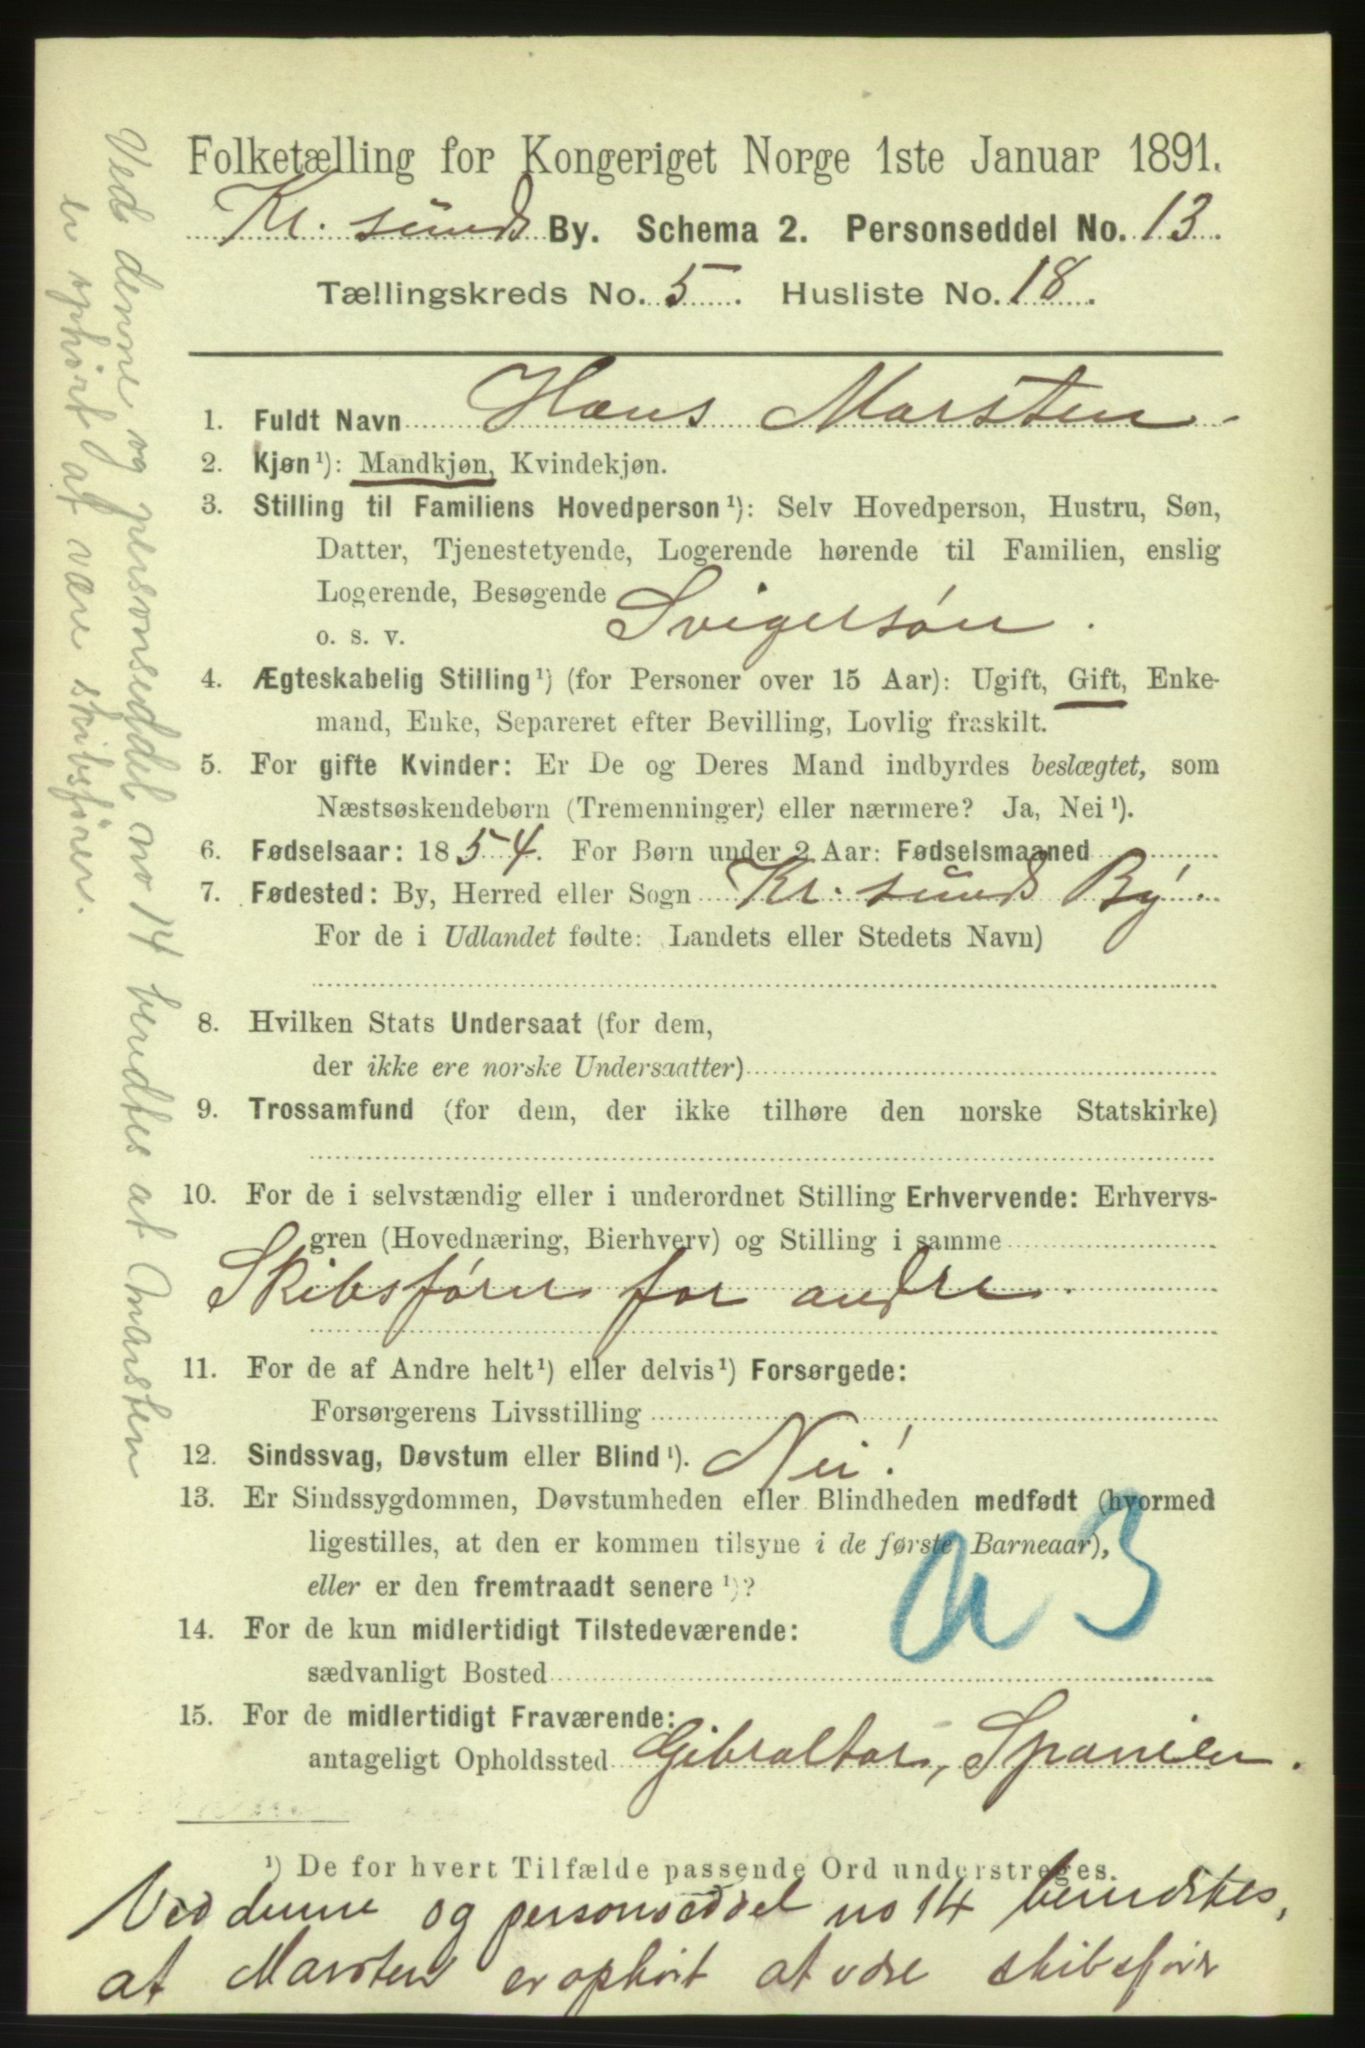 Folketælling for Kongeriget Norge 1ste Januar 1891.
Kr. sunds By. Schema 2. Personseddel No. 13.
Tællingskreds No. 5. Husliste No. 18.
1. Fuldt Navn Hans Marsten
2. Kjøn¹): Mandkjøn, Kvindekjøn.
3. Stilling til Familiens Hovedperson¹): Selv Hovedperson, Hustru, Søn,
Datter, Tjenestetyende, Logerende hørende til Familien, enslig
Logerende, Besøgende
o. s. v. Svigersøn.
4. Ægteskabelig Stilling¹) (for Personer over 15 Aar): Ugift, Gift, Enke-
mand, Enke, Separeret efter Bevilling, Lovlig fraskilt.
5. For gifte Kvinder: Er De og Deres Mand indbyrdes beslægtet, som
Næstsøskendebørn (Tremenninger) eller nærmere? Ja, Nei¹).
6. Fødselsaar: 1854. For Børn under 2 Aar: Fødselsmaaned
7. Fødested: By, Herred eller Sogn Kr. sunds By.
For de i Udlandet fødte: Landets eller Stedets Navn)
8. Hvilken Stats Undersaat (for dem,
der ikke ere norske Undersaatter)
9. Trossamfund (for dem, der ikke tilhøre den norske Statskirke)
10. For de i selvstændig eller i underordnet Stilling Erhvervende: Erhvervs-
gren (Hovednæring, Bierhverv) og Stilling i samme
Skibsfører for andre.
11. For de af Andre helt¹) eller delvis¹) Forsørgede:
Forsørgerens Livsstilling
12. Sindssvag, Døvstum eller Blind¹). Nei!
13. Er Sindssygdommen, Døvstumheden eller Blindheden medfødt (hvormed
ligestilles, at den er kommen tilsyne i de første Barneaar),
eller er den fremtraadt senere¹)?
a 3
14. For de kun midlertidigt Tilstedeværende:
sædvanligt Bosted
15. For de midlertidigt Fraværende:
antageligt Opholdssted Gibraltar, Spanien.
¹) De for hvert Tilfælde passende Ord understreges.
Ved denne og personseddel no 14 bemærkes,
at Marsten er ophørt at være skibsfører
Ved denne og personseddel no 14 at Marsten
er ophørt at være skibsfører.